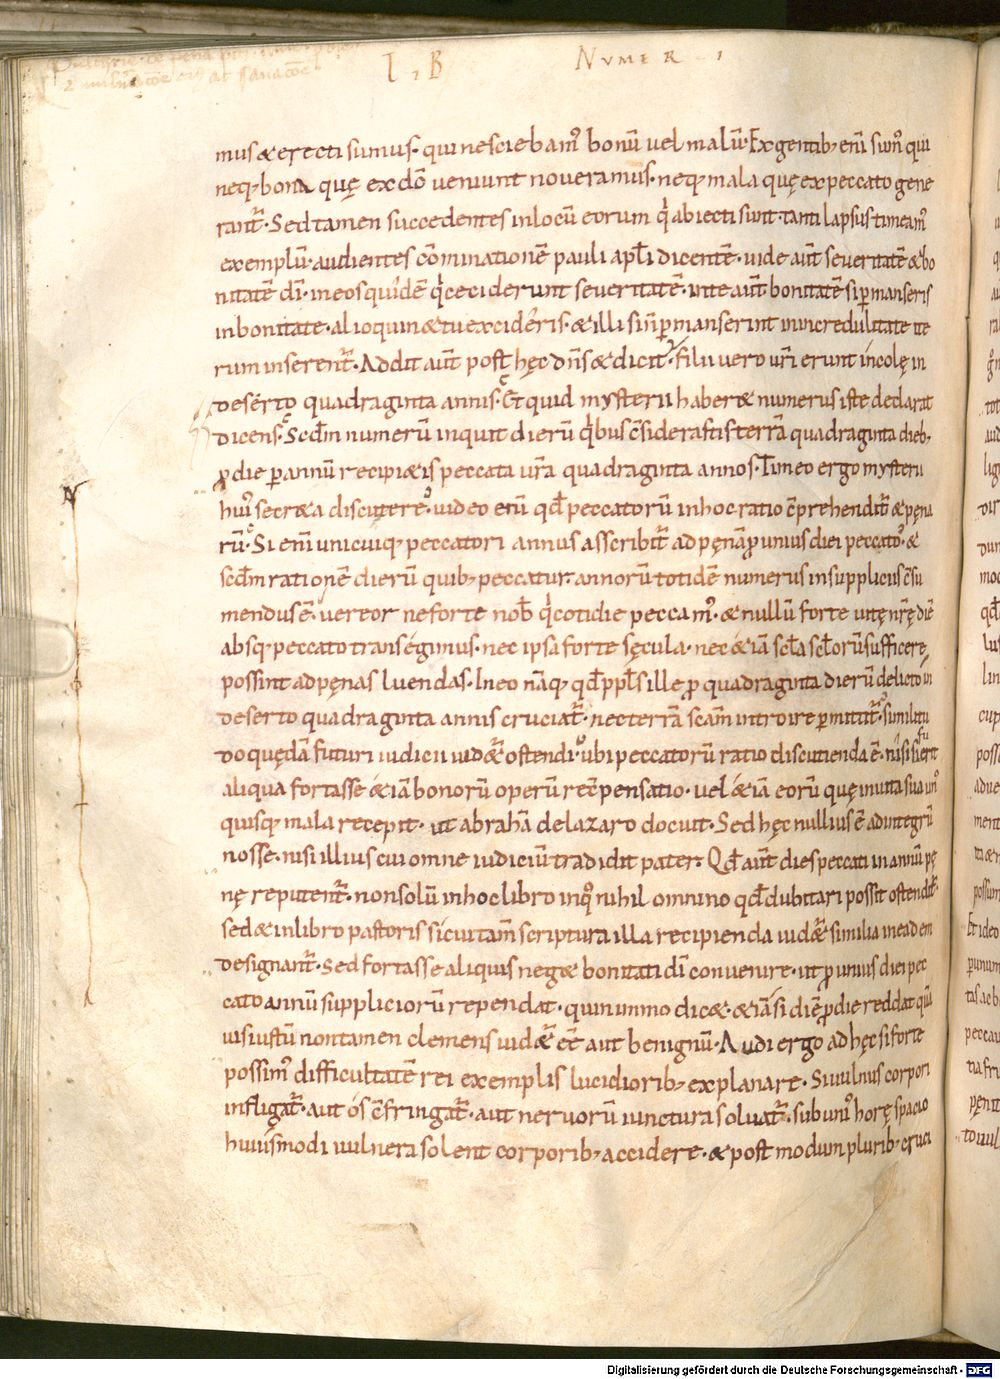 L I B NUMERI
mus & erecti sumus· qui nesciebam᷒ bonū vel malū· Ex gentib; enī sum᷒ qui
neq; bona quę ex dō veniunt noveramus· neq; mala quę ex peccato gene
rant᷑· Sed tamen succedentes in locū eorum q abiecti sunt· tanti lapsus timeam᷒
exemplū· audientes cōminationē pauli apłi dicentē· vide aut̄ severitatē & bo
nitatē dī· in eos quidē q ceciderunt severitatē· in te aut̄ bonitatē si ꝑmanseris
in bonitate· alioquin & tu excideris· & illi si n̄ ꝑmanserint in incredulitate ite
rum inserent᷑· Addit aut̄ post hęc dn̄s & dicit· filii vero vr̄i erunt incolę in
deserto quadraginta annis· Et quid mysterii haber& numerus iste declarat
dicens· Scdm numerū inquit dierū qbus cōsiderastis terrā quadraginta dieb;
ꝓ die ꝑ annū recipi&is peccata vr̄a quadraginta annos· Timeo ergo mysterii
hui᷒ secr&a discutere· video enī qđ peccatorū in hoc ratio cōprehendit᷑ & pęna
rū· Si enī unicuiq; peccatori annus asscribit᷑ ad pęnā ꝓ unius diei peccato· &
scdm rationē dierū quib; peccatur· annorū totidē numerus in suppliciis cōsu
mendus ē· vereor ne forte nob̄ q cotidie peccam᷒· & nullū forte vitę nr̄ę diē
absq; peccato transégimus· nec ipsa forte sęcula· nec &iā scła scłorū sufficere
possint ad pęnas luendas· In eo nāq; qđ ppłs ille ꝓ quadraginta dierū delicto in
deserto quadraginta annis cruciat᷑· nec terrā scām introire ꝑmittit᷑· similitu
do quędā futuri iudicii vid&᷑ ostendi· ubi peccatorū ratio discutienda ē· nisi si fu erit
aliqua fortasse &iā bonorū operū recōpensatio· vel &iā eorū quę in vita sua un᷒
quisq; mala recepit· ut abrahā de lazaro docuit· Sed hęc nullius ē ad integrū
nosse· nisi illius cui omne iudiciū tradidit pater· Qđ aut̄ dies peccati in annū pę
nę reputent᷑· non solū in hoc libro in q᷒ nihil omnino qđ dubitari possit ostendit᷑·
sed & in libro pastoris si cui tam̄ scriptura illa recipienda vid&᷑ similia in eadem
designant᷑· Sed fortasse aliquis neg& bonitati dī convenire· ut ꝓ unius diei pec
cato annū suppliciorū rependat· quin immo dic&· &iā si diē ꝓ die reddat quā
vis iustū non tamen clemens vid&᷑ eē aut benignū· Audi ergo ad hęc si forte
possim᷒ difficultatē rei exemplis lucidiorib; explanare· Si vulnus corpori
infligat᷑· aut ós cōfringat᷑· aut nervorū iunctura solvat᷑· sub uni᷒ horę spacio
huiusmodi vulnera solent corporib; accidere· & post modum plurib; cruci
Digitalisierung gefördert durch die Deutsche Forschungsgemeinschaft - DFG